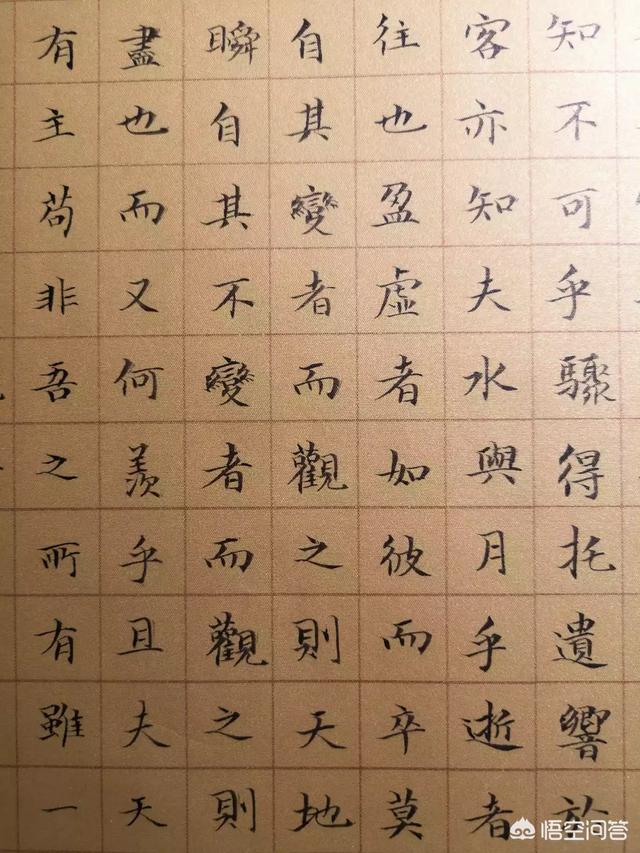 知不可乎驟得托遺響於
客亦知夫水與月乎逝者
往也盈虚者如彼而卒莫
自其變者而觀之則天地
瞬自其不變者而觀之則
盡也而又何羨乎且夫天
有主苟非吾之所有雖一
悟空问答